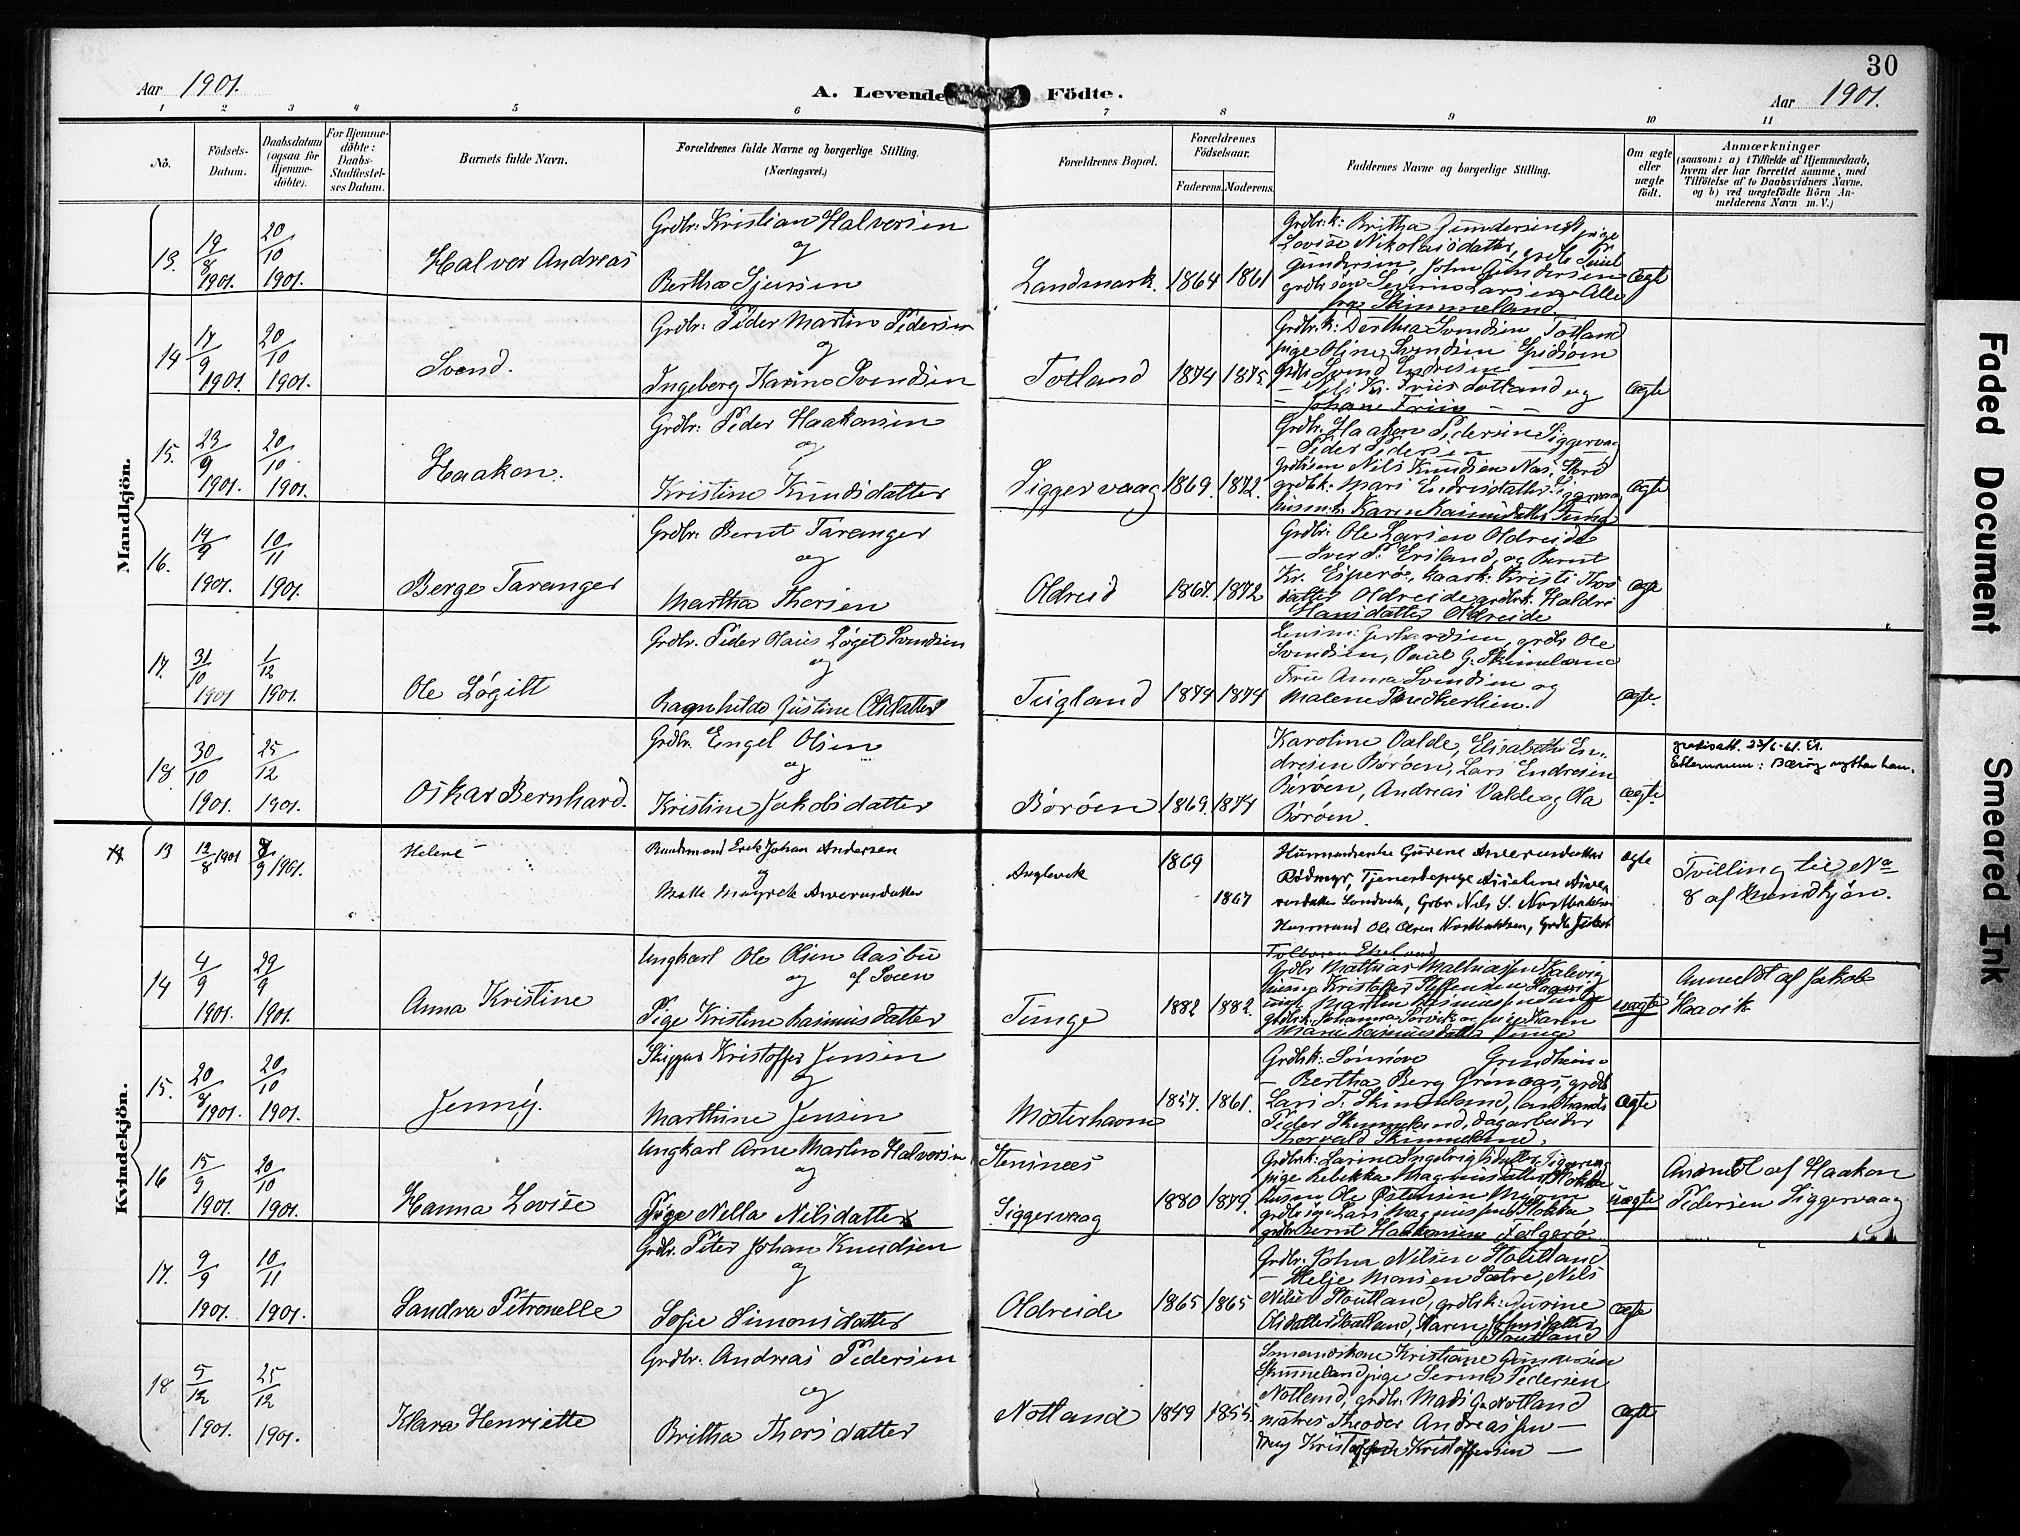 30
Aar 1901.
A. Levende Födte.
Aar 1901.
1 2 3 4 5 6 7 8 9 10 11
No.
Födsels-Datum.
Daabsdatum (ogsaa för Hjemme-döbte).
For Hjemme-döbte: Daabs-Stadfæstel-ses Datum.
Barnets fulde Navn.
Forældrenes fulde Navne og borgerlige Stilling.
(Næringsvei.)
Forældrenes Bopæl.
Forældrenes Födselsaar.
Faderens. Moderens.
Faddernes Navne og borgerlige Stilling.
Om ægte eller uægte födt.
Anmærkninger
(saasom: a) i Tilfælde af Hjemmedaab, hvem der har forrettet samme, med Tilföielse af to Daabsvidners Navne, og b) ved uægtefödte Börn An-melderens Navn m. V.)
Mandkjön.
13. 19/8 1901. 20/10 1901. Halvor Andreas
Grdbr: Kristian Halvorsen
og
Bertha Sjursen
Landmark. 1864 1861
Grdbrk: Britha Gundersen, pige
Lovise Nikolaisdatter,
Gundersen, John Gundersen
grdbrsøn Severin Larsen Alle
fra Skimmeland.
ægte
14 17/9 1901. 20/10 1901. Svend.
Grdbr: Peder Martin Pedersen
og
Ingeborg Karine Svendsen
Totland 1874 1875.
Grdbrk: Berthea Svendsen Totland
pige Oline Svendsen
grdbr Svend Endresen
— Nils Kr. Friis Totland og
— Johane Friis — —
ægte
15. 23/9 1901. 20/10 1901. Haakon.
Grdbr: Peder Haakonsen
og
Kristine Knudsdatter
Siggervaag 1869. 1872.
Grdbr. Haakon Pedersen Siggervaag
— Peder Pedersen —
Grdbrsøn Nils Knudsen Næs, Stord
grdbrk: Mari Endresdatter Siggervaag
husmk: Karen Rasmusdatter Tunge
ægte
16. 14/9 1901. 10/11 1901. Berge Taranger
Grdbr: Bernt Taranger
og
Martha Thorsen
Oldreid 1867. 1872
Grdbr: Ole Larsen Oldreide
— Iver P. Ersland, og Bernt
Kr. Esperøe, kaark: Kristi Thors
datter Oldreide grdbrk. Haldri
Hansdatter Oldreide
ægte
17. 31/10 1901 1/12 1901. Ole Løgitt
Grdbr. Peder Olaus Løgit Svendsen
og
Ragnhilda Justine Olsdatter
Fugland 1874 1874
Gerhardsen, grdbr Ole
Svendsen, Paul G. Skimeland
Frue Anna Svendsen og
Malene
ægte.
18. 30/10 1901. 25/12 1901. Oskar Bernhard.
Grdbr. Engel Olsen
og
Kristine Jakobsdatter
Børøen 1869. 1874
Karoline Valde, Elisabeth En-
dresen Børøen, Lars Endresen
Børøen, Andreas Valde og Ola
Børøen.
ægte.
23/6-61.
Etternavn: Børøy nyttar han.
Kvindekjön.
13 12/8 1901 8/9 1901. Helene
Bundsmand Erik Johan Andersen
og
Mette Margrete Anversdatter
1869
1867
ægte
Tvilling til No
8 af Mandkjøn.
14 4/9 1901. 29/9 1901. Anna Kristine
Ungkarl Ole Olsen Aasbu
og af Sveen
Pige Kristine Rasmusdatter
Tunge 1882 1882.
Grdbr Mathias Mathiassen Kalevig
husm Kristoffer Steffensen Haavig
ungk Martin Rasmussen Tunge
grdbrk. Johanna Sørvik og pige Karen
Marie Rasmusdatter Tunge
uægte
Anmeldt af Jakob
Haavik
15. 20/8 1901. 20/10 1901. Jenny.
Skipper Kristoffer Jensen
og
Marthine Jensen
Mosterhavn 1857. 1861.
Grdbrk: Grindheim
— Bertha Berg Grønaas, grdbr
Lars T. Skimmeland, landhandl
Peder Skimmeland, dagarbeider
Thorvald Skimmeland.
ægte
16 15/9 1901. 20/10 1901. Hanna Lovise
Ungkarl Arne Martin Halvorsen
og
Pige Nella Nilsdatter
Stensnæs
Siggervaag 1880 1879.
pige Rebekka Magnusdatter Hokka
husm Ole Østensen
grdbrsøn Lars Magnussen Hokka
grdbr Bernt Haakonsen Folgerø
uægte
Anmeldt af Haakon
Pedersen Siggervaag
17. 9/9 1901. 10/11 1901. Sandra Petronelle
Grdbr. Peter Johan Knudsen
og
Sofie Simonsdatter
Oldreide 1865 1865
Grdbr. John Nilsen Houtland
— Helje Monsen Sætre, Nils
Nilsen Houtland, grdbrk:
Olsdatter Houtland, Karen Johnsdatter
Houtland
ægte
18 5/12 1901. 25/12 1901. Klara Henriette
Grdbr. Andreas Pedersen
og
Britha Thorsdatter
Notland 1849 1855.
Kristiane Gundersen
Skimmeland pige Serina Pedersen
Notland, grdbr. Mads G. Notland
matros Theodor Andreassen —
Kristoffer Kristoffersen —
ægte
Faded Document
Smeared Ink